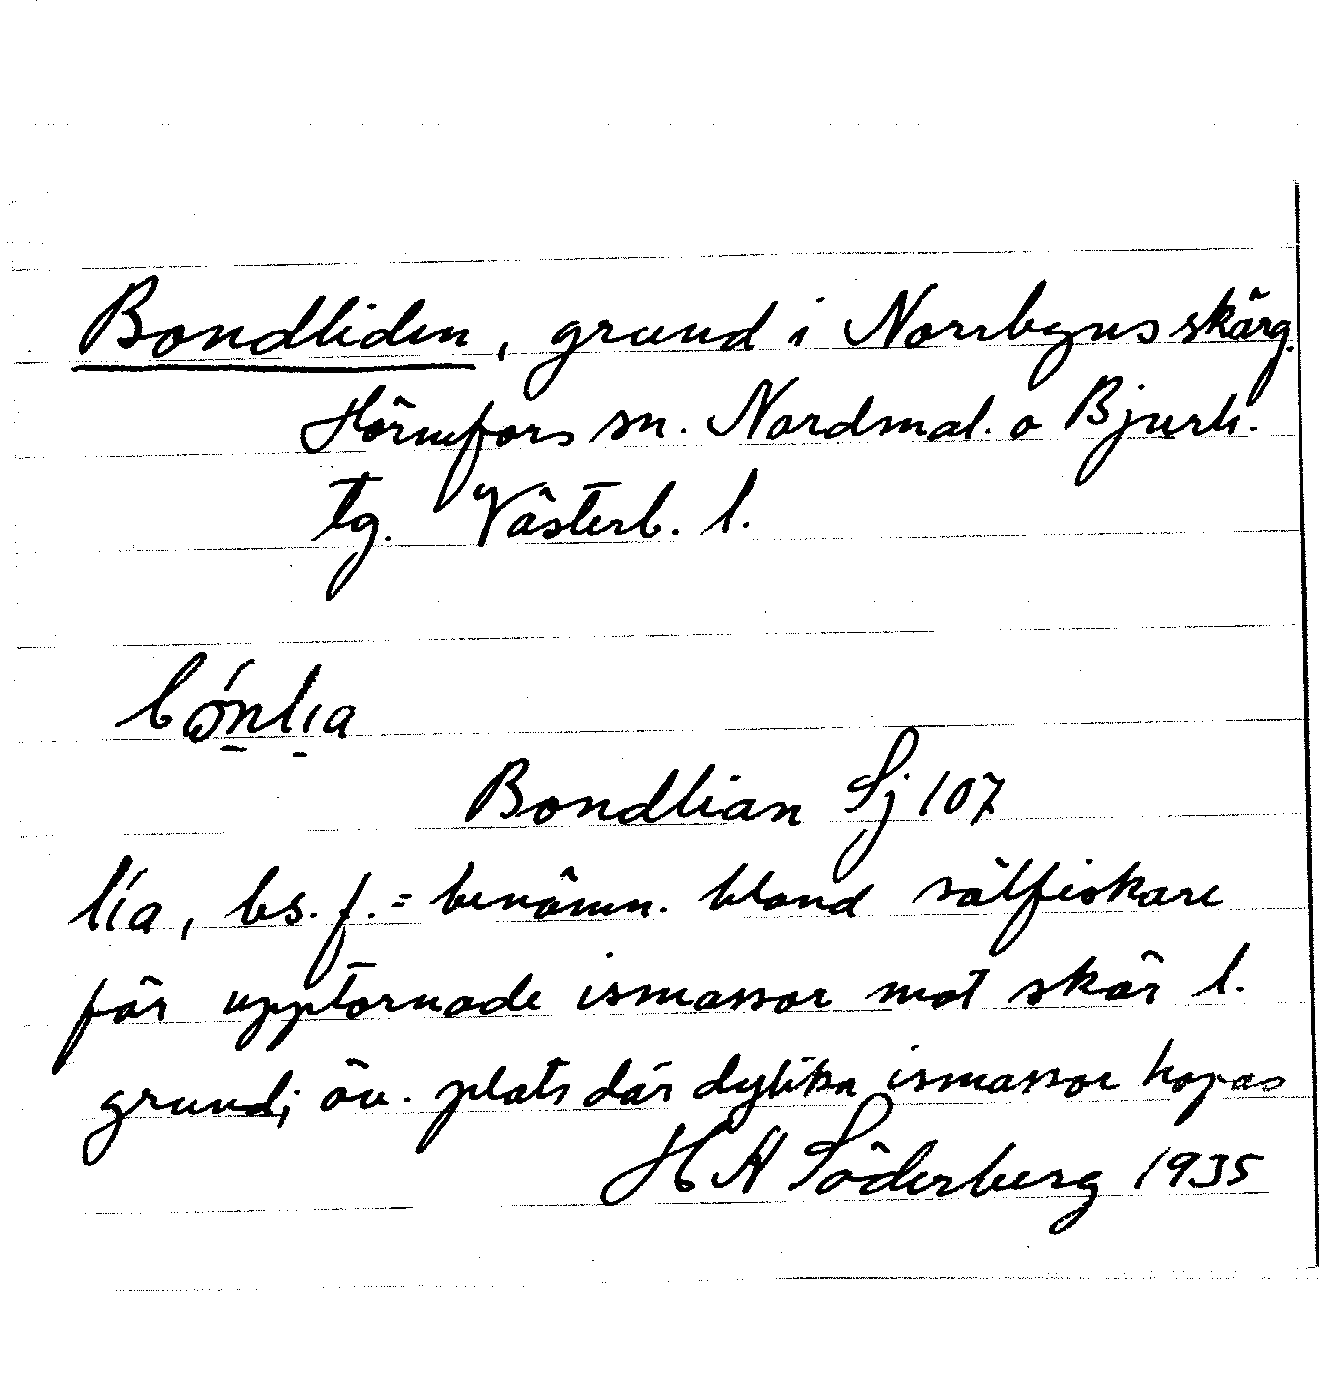 Bondliden, grund i Norrbyns skärg.
Hörnefors sn. Nordmal. o Bjurh.
tg. Västerb. l.
bɔ́nlıa
Bondlian Sj 107
lía, bs. f. = benämn. bland sälfiskare
för upptornade ismassor mot skär l.
grund; äv. plats där dylika ismassor hopas
H A Söderberg 1935